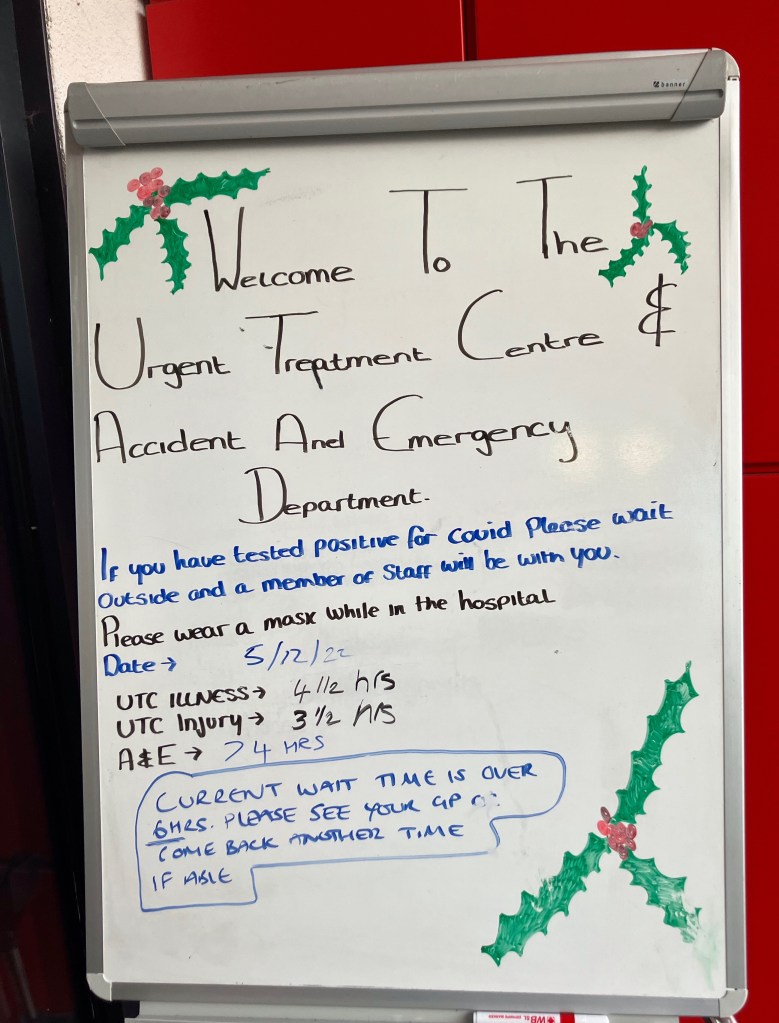 Welcome To The
Urgent Treatment Centre &
Accident And Emergency
Department.
If you have tested positive for covid Please wait
Outside and a member of Staff will be with you.
Please wear a mask while in the hospital
Date → 5/12/22
UTC ILLNESS → 4 1/2 hrs
UTC Injury → 3 1/2 hrs
A&E → >4 HRS
CURRENT WAIT TIME IS OVER
6HRS. PLEASE SEE YOUR GP
COME BACK ANOTHER TIME
IF ABLE